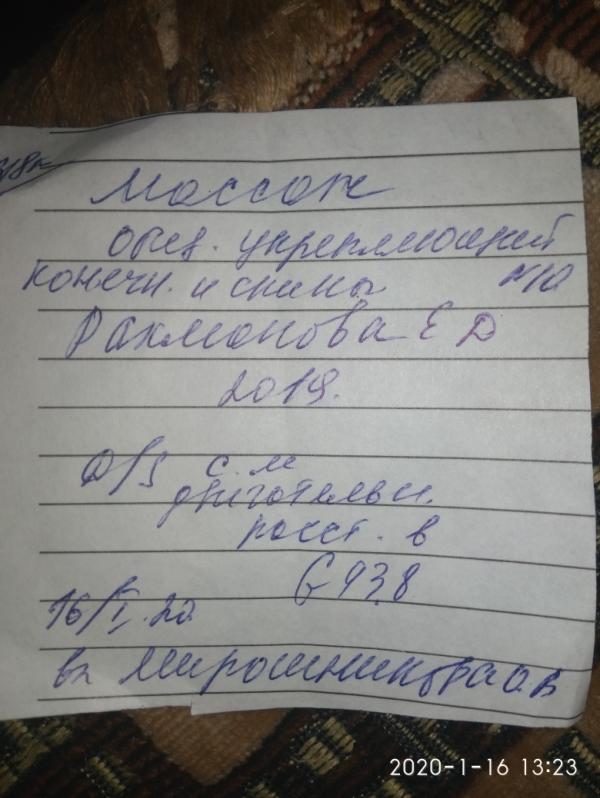 Массаж
общ. укрепляющий
конечн. и спины №10
Рахмонова Е Д
2019.
D/S с-м
двигательн.
расст. в
G 93.8
16/I.20
вр Мирошникова О.В
2020-1-16 13:23